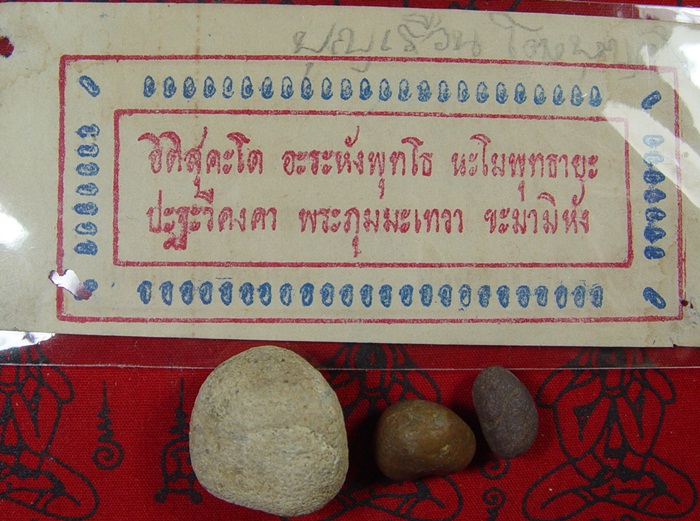 บุญเรือน
อิติสุคะโต อะระหังพุทโธ นะโมพุทธายะ
ปะฐะวีคงคา พระภุมมะเทวา ขะมามิหัง